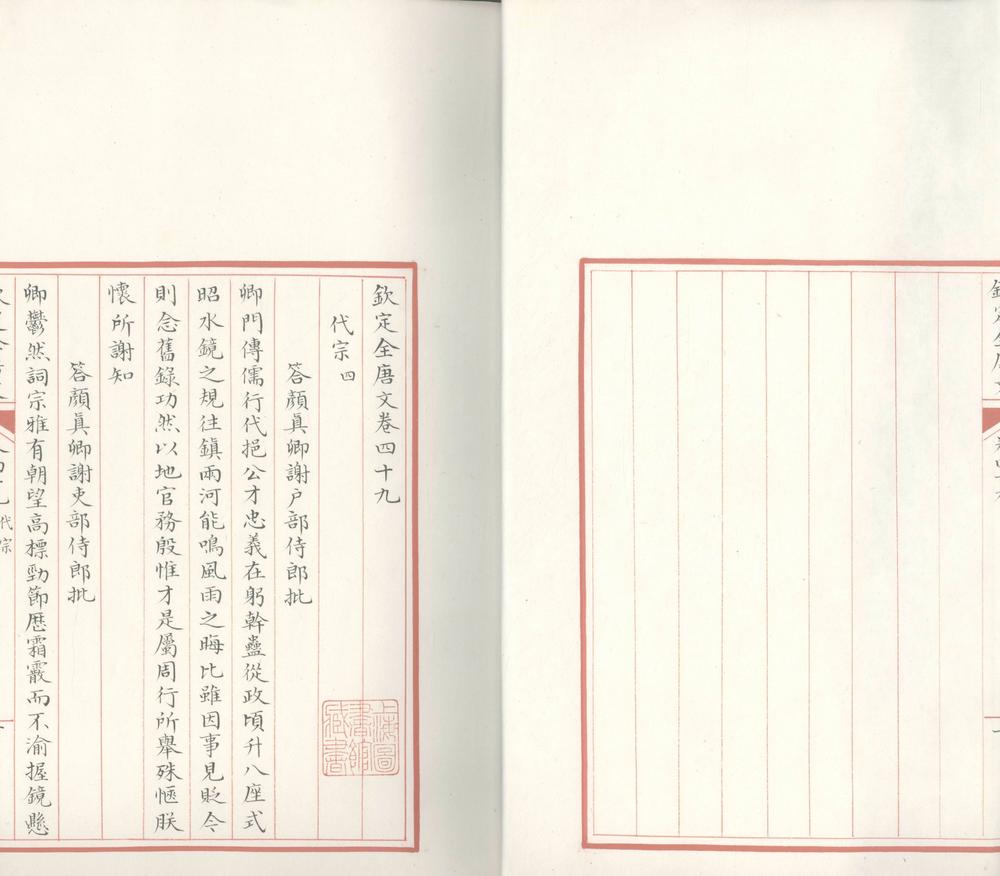 欽定全唐文卷四十九
代宗四
答顔真卿謝户部侍郎批
卿門傳儒行代挹公才忠義在躬幹蠱從政頃升八座式
昭水鏡之規往鎮兩河能鳴風雨之晦比雖因事見貶令
則念舊錄功然以地官務殷惟才是屬周行所舉殊愜朕
懷所謝知
答顔真卿謝吏部侍郎批
卿鬱然詞宗雅有朝望高標勁節歴霜霰而不渝握鏡懸
代宗
上海圖
書館
藏書